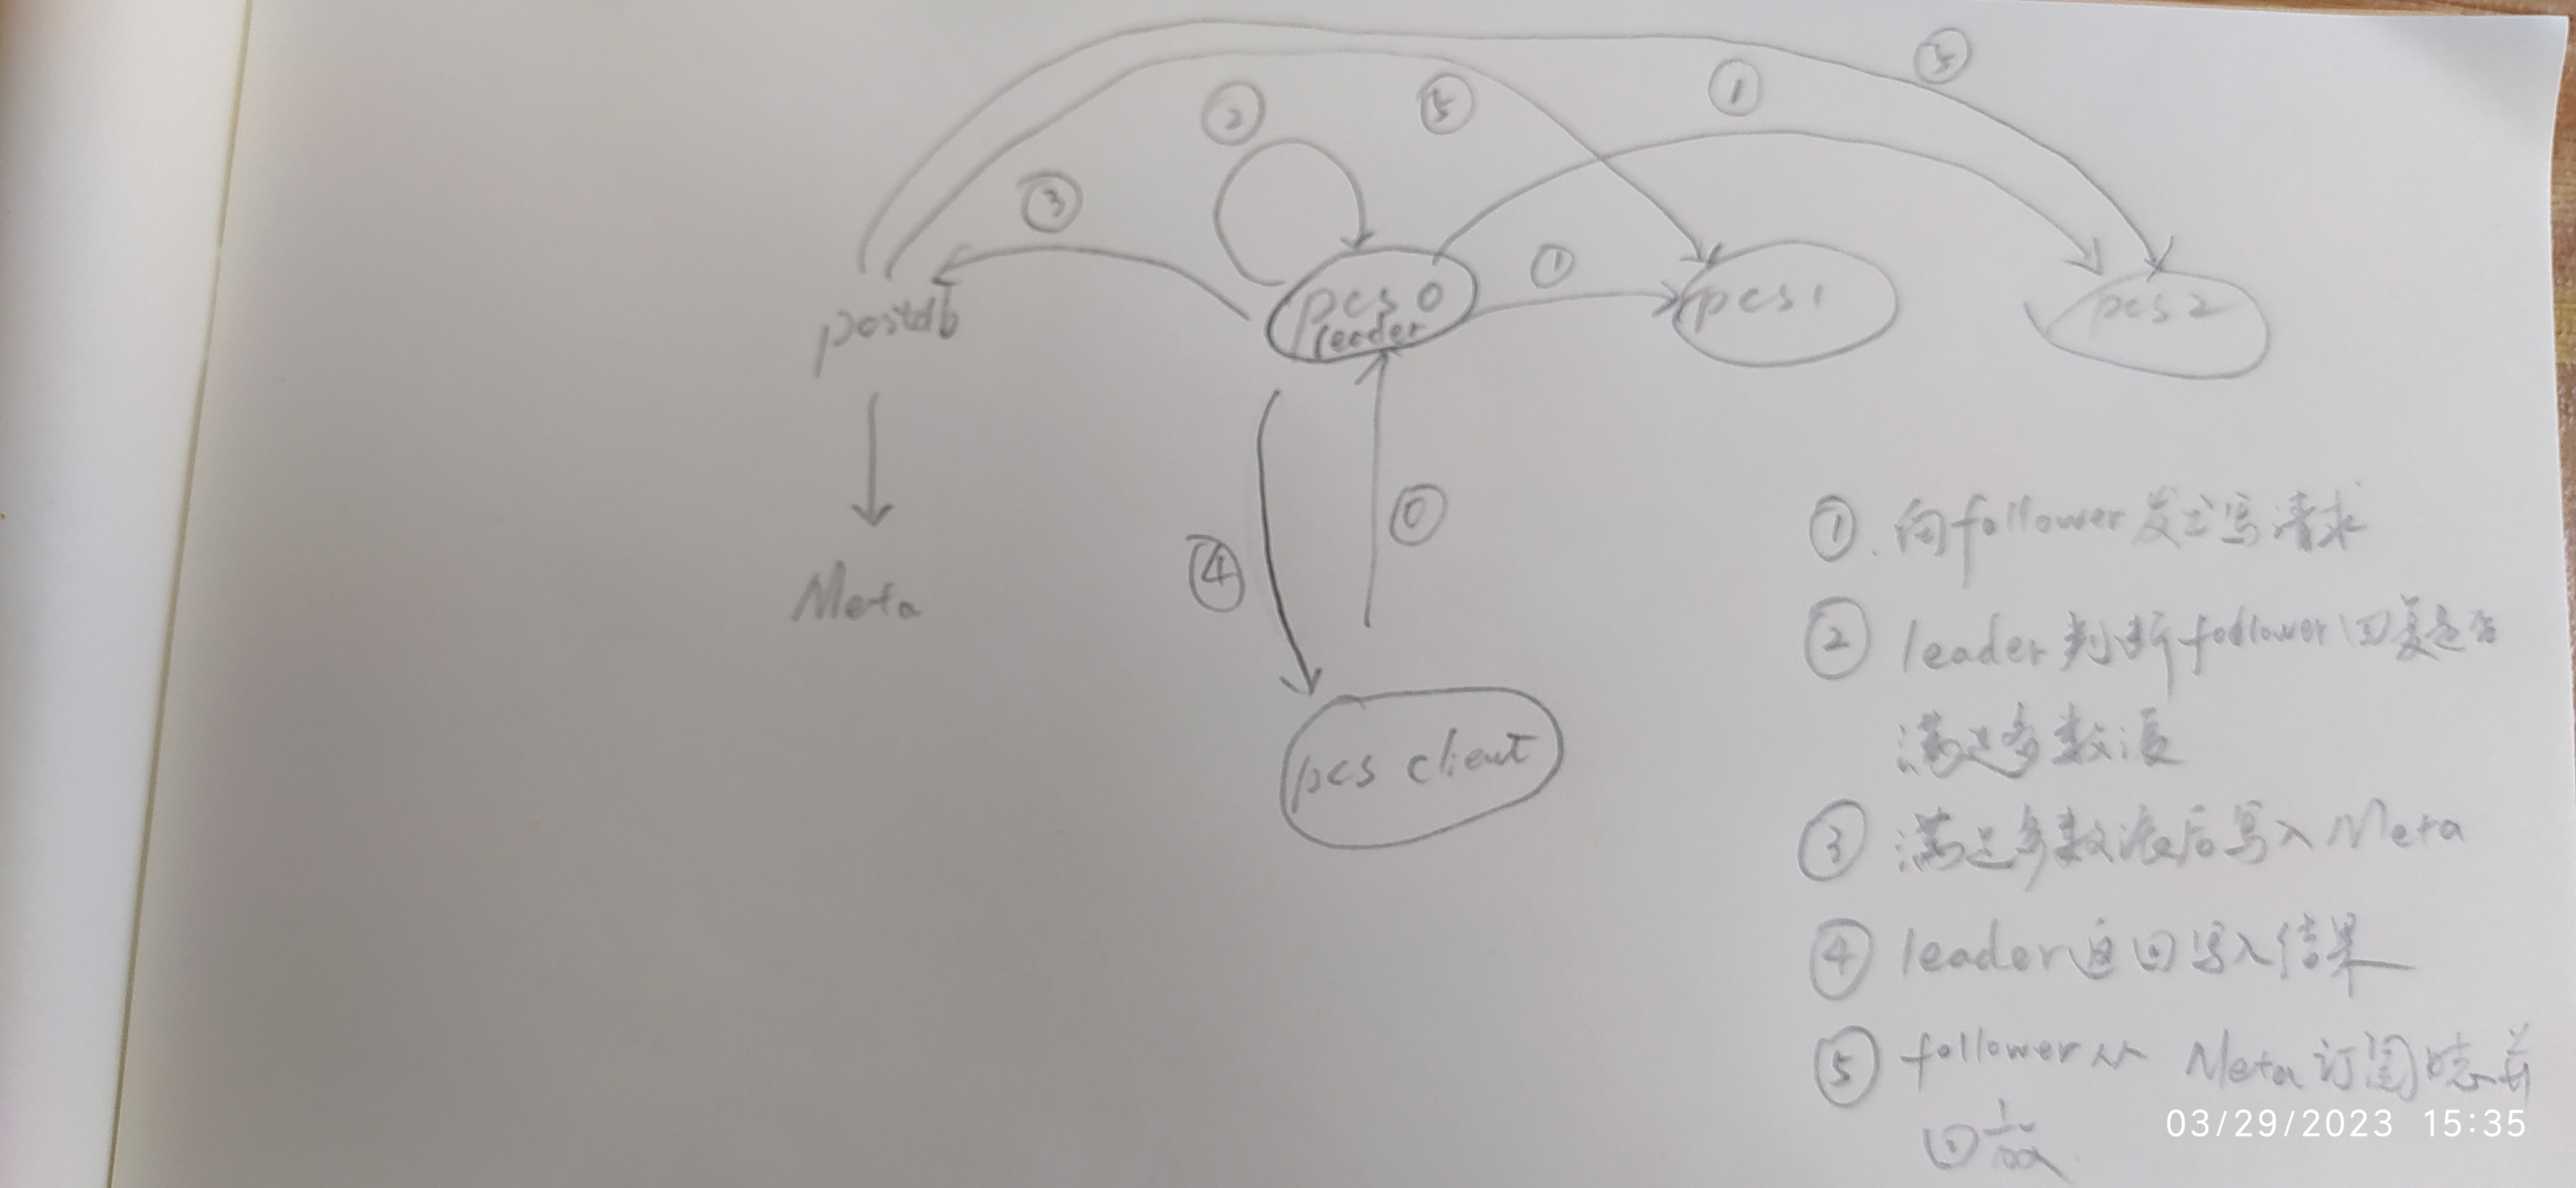 ⑤
①
②
⑤
③
postdb
pcs 0
leader
①
pcs 1
pcs 2
Meta
④
⓪
pcs client
①. 向follower发出写请求
② leader判断follower回复是否
满足多数派
③ 满足多数派后写入Meta
④ leader返回写入结果
⑤ follower从 Meta订阅日志并
回放
03/29/2023 15:35